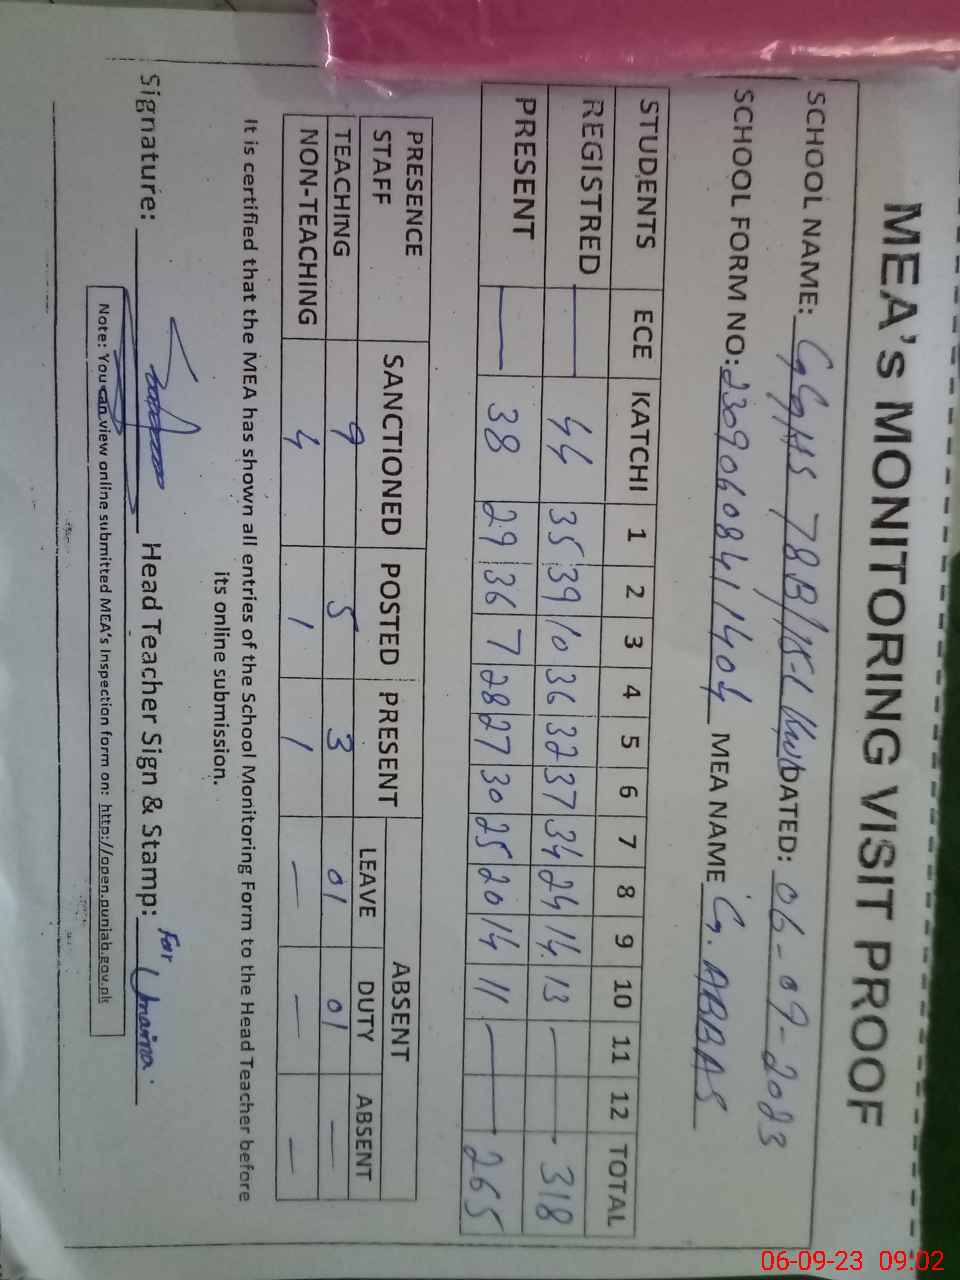 MEA's MONITORING VISIT PROOF
SCHOOL NAME: GGHS 78B/15-L DATED: 06-09-2023
SCHOOL FORM NO: 23090608411404 MEA NAME G. ABBAS
STUDENTS ECE KATCHI 1 2 3 4 5 6 7 8 9 10 11 12 TOTAL
REGISTRED — 44 35 39 10 36 32 37 34 24 14 13 — 318
PRESENT — 38 29 36 7 28 27 30 25 20 14 11 — 265
PRESENCE STAFF SANCTIONED POSTED PRESENT ABSENT
LEAVE DUTY ABSENT
TEACHING 9 5 3 01 01 —
NON-TEACHING 4 1 1 — — —
It is certified that the MEA has shown all entries of the School Monitoring Form to the Head Teacher before
its online submission.
Signature: Head Teacher Sign & Stamp: For Umaima
Note: You can view online submitted MEA's Inspection form on: http://open.punjab.gov.pk
06-09-23 09:02